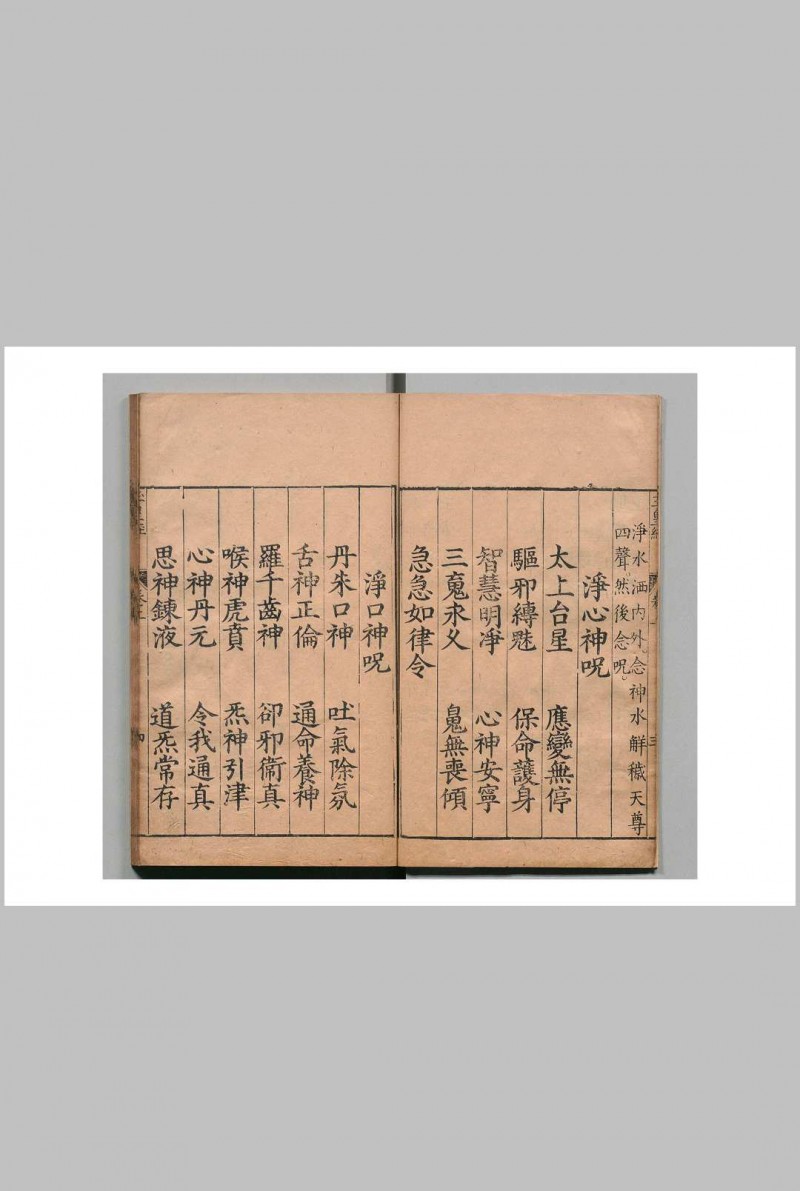 淨水洒内外念神水解穢天尊
四聲然後念呪
淨心神呪
太上台星 應變無停
驅邪縛魅 保命護身
智慧明淨 心神安寧
三魂永久 魄無喪傾
急急如律令
淨口神呪
丹朱口神 吐氣除氛
舌神正倫 通命養神
羅千齒神 卻邪衞真
喉神虎賁 炁神引津
心神丹元 令我通真
思神鍊液 道炁常存